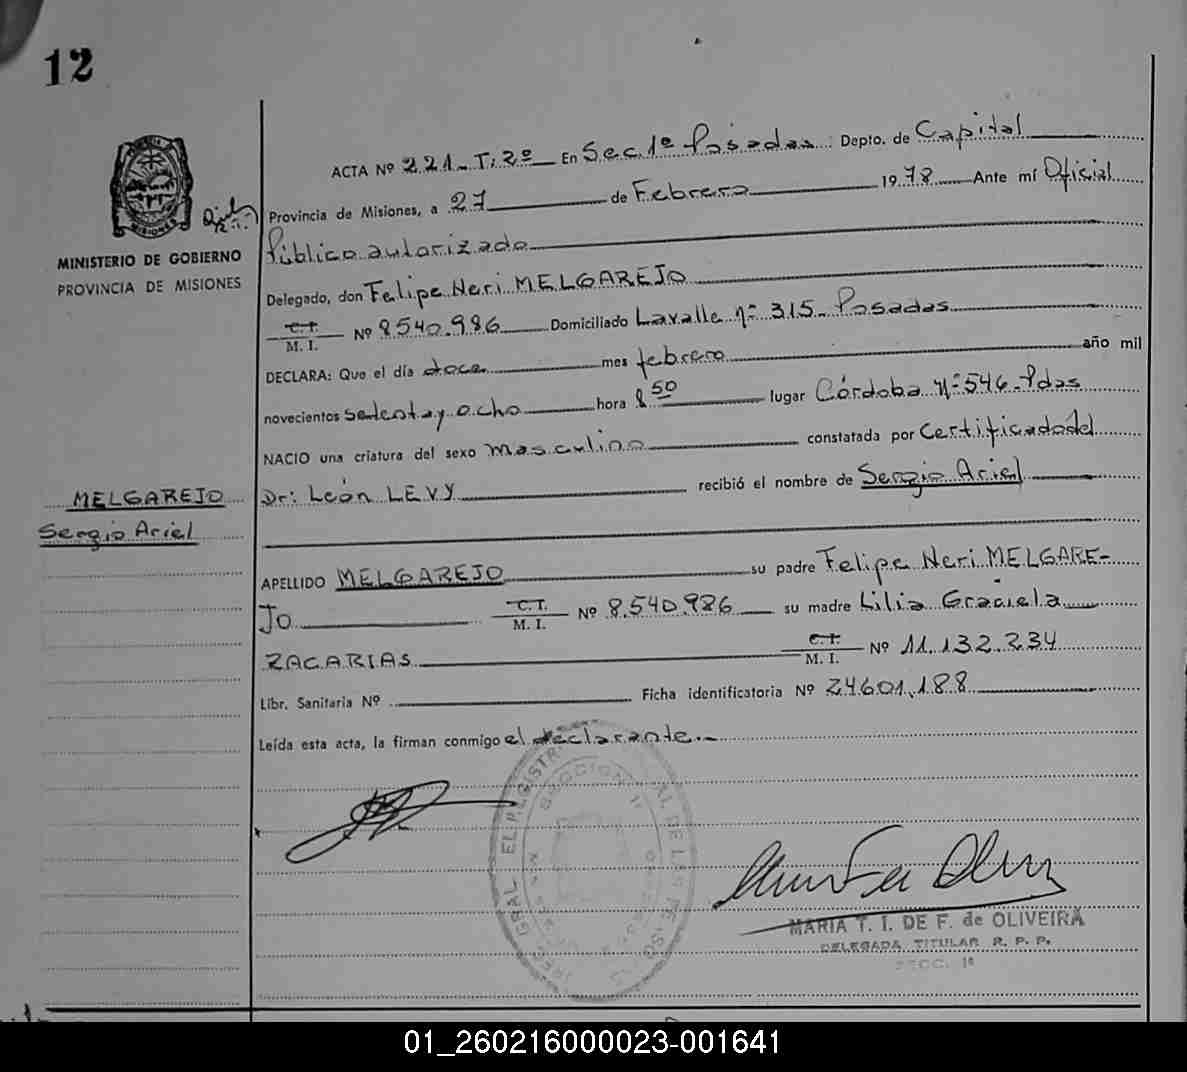 12
MINISTERIO DE GOBIERNO
PROVINCIA DE MISIONES
ACTA Nº 221 - T: 2º En Sec. 1º Posadas: Depto. de Capital
Provincia de Misiones, a 27 de Febrero 1978 Ante mí Oficial
Público autorizado
Delegado, don Felipe Neri MELGAREJO
C.I. M. I. Nº 8540.986 Domiciliado Lavalle nº 315 - Posadas
DECLARA: Que el día doce mes febrero año mil
novecientos setenta y ocho hora 8 50 lugar Córdoba nº 546 - Pdas
NACIO una criatura del sexo masculino constatada por Certificado del
Dr: León LEVY recibió el nombre de Sergio Ariel
MELGAREJO
Sergio Ariel
APELLIDO MELGAREJO su padre Felipe Neri MELGARE-
JO C.I. M. I. Nº 8.540.986 su madre Lilia Graciela
ZACARIAS C.I. M. I. Nº 11.132.234
Libr. Sanitaria Nº Ficha identificatoria Nº 24601.188
Leída esta acta, la firman conmigo el declarante.-
MARIA T. I. DE F. de OLIVEIRA
DELEGADA TITULAR R. P. P.
SECC. 1ª
01_260216000023-001641